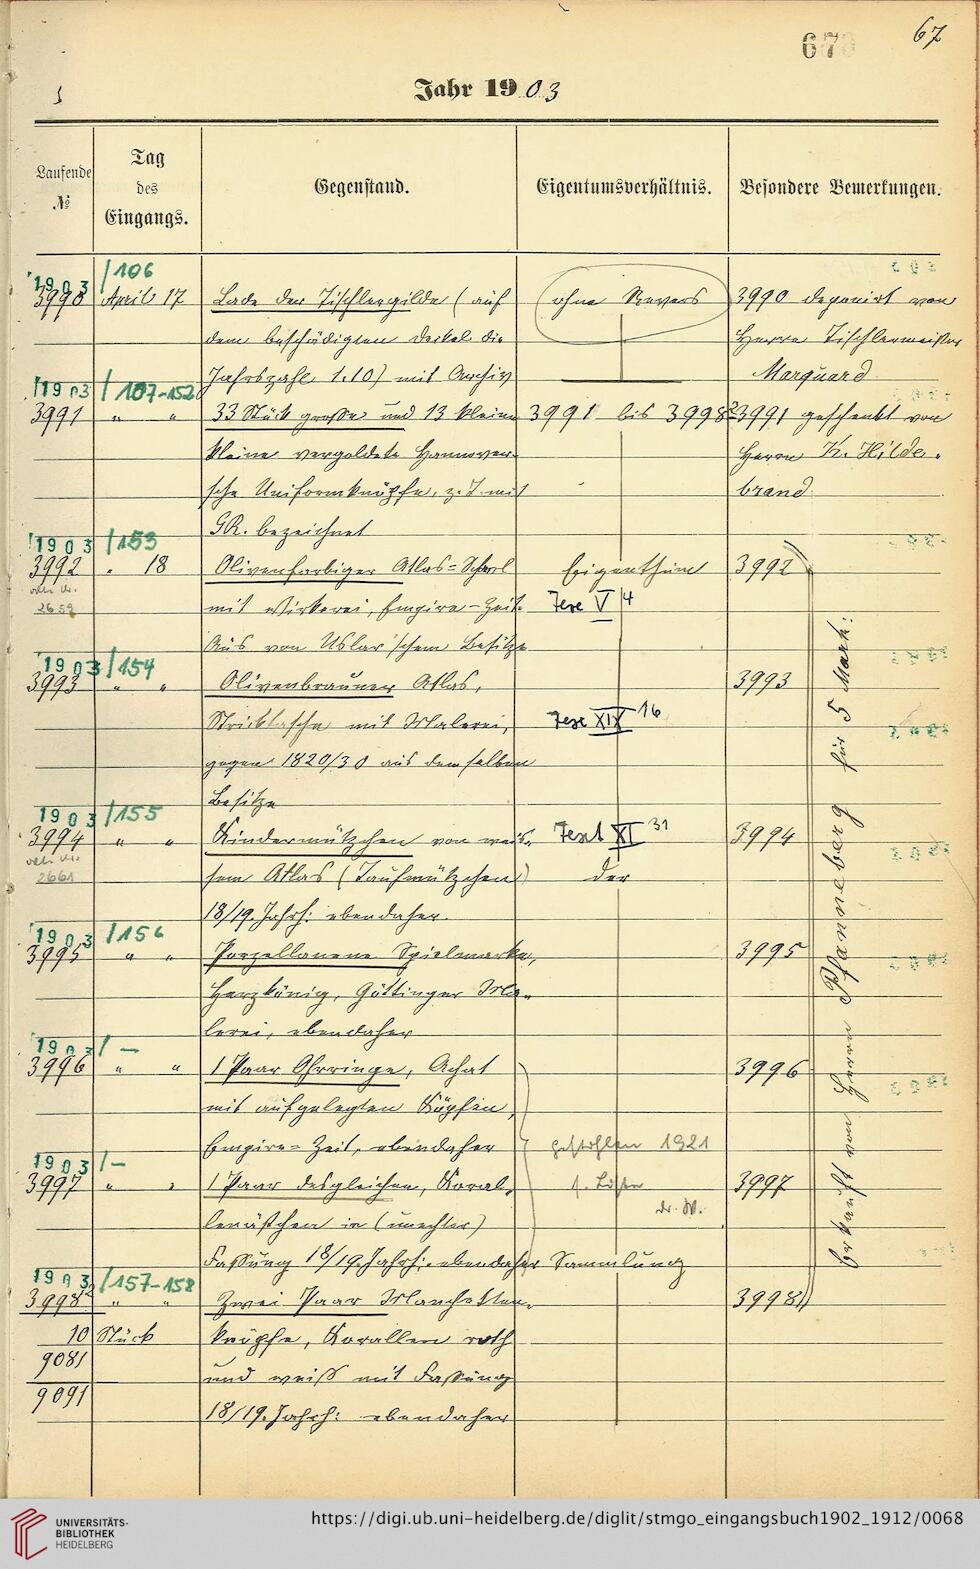 67
67
Jahr 1903
Laufende
№
Tag
des
Eingangs.
Gegenstand.
Eigentumsverhältnis.
Besondere Bemerkungen.
1903/106
3990 April 17 Lade der Tischlergilde (auf ohne Revers 3990 deponirt von
dem beschädigten Deckel die Herrn Tischlermeister
Jahrszahl 1.10) mit Archiv Marquard
1903/107-152
3991 " " 33 Stück große und 13 kleine 3991 bis 3998² 3991 geschenkt von
kleine vergoldete Hannover- Herrn K. Hilde-
sche Uniformknöpfe, z. T. mit brand
GR. bezeichnet
1903/153
3992 " 18 Olivenfarbiger Atlas-Shawl Eigenthum 3992
2659 mit Wirkerei, Empire-Zeit. V 4
Aus von Uslar'schem Besitze
1903/154
3993 " " Olivenbrauner Atlas, 3993
Stricktasche mit Malerei, XIX 16
gegen 1820/30 aus demselben
Besitze
1903/155
3994 " " Kindermützchen von weis- Text XI 31 3994
2661 sem Atlas (Taufmützchen) der
18/19. Jahrh: ebendaher.
1903/156
3995 " " Porzellanene Spielmarke, 3995
Herzkönig, Göttinger Ma-
lerei, ebendaher
1903/—
3996 " " 1 Paar Ohrringe, Achat 3996
mit aufgelegten Köpfen,
Empire-Zeit, ebendaher gestohlen 1921
1903/—
3997 " " 1 Paar desgleichen, Koral- s. Liste 3997
lenästchen in (unechter) W.
Fassung 18/19. Jahrh: ebendaher Sammlung
1903/157-158
3998² " " Zwei Paar Manschetten- 3998
10 Stück knöpfe, Korallen roth
9081 und weiss mit Fassung
9091 18/19. Jahrh: ebendaher
verkauft von Herrn Pfanneberg für 5 Mark:
UNIVERSITÄTS-
BIBLIOTHEK
HEIDELBERG
https://digi.ub.uni-heidelberg.de/diglit/stmgo_eingangsbuch1902_1912/0068